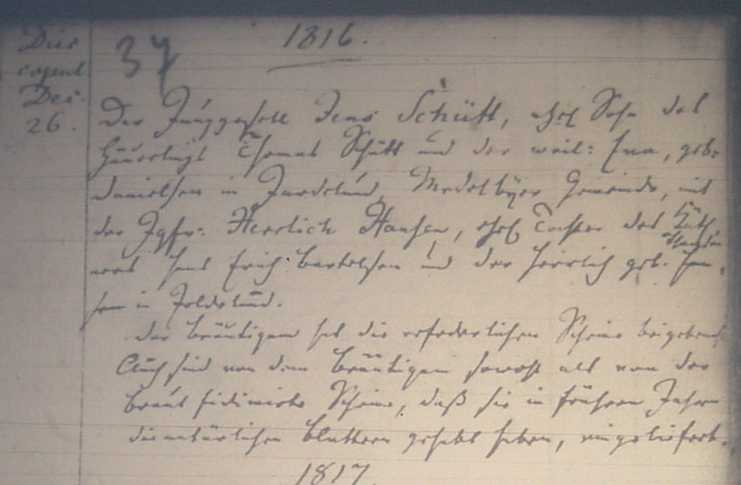 1816.
Dies
copul.
Dec.
26.
37
Der Junggesell Jens Schütt, ehel. Sohn des
Thomas Schütt und der weil: geb.
Danielsen in Jardelund, Medelbyer Gemeinde, mit
der Jgfr: Herrlich Hansen, ehel. Tochter des
Jens Erich und der Herrlich geb. Han-
sen in Joldelund.
Der Bräutigam hat die erforderlichen Scheine beigebracht
Auch sind von dem Bräutigam sowohl als von der
Braut fidimirte Scheine, daß sie in frühern Jahren
die natürlichen Blattern gehabt haben, eingeliefert.
1817.